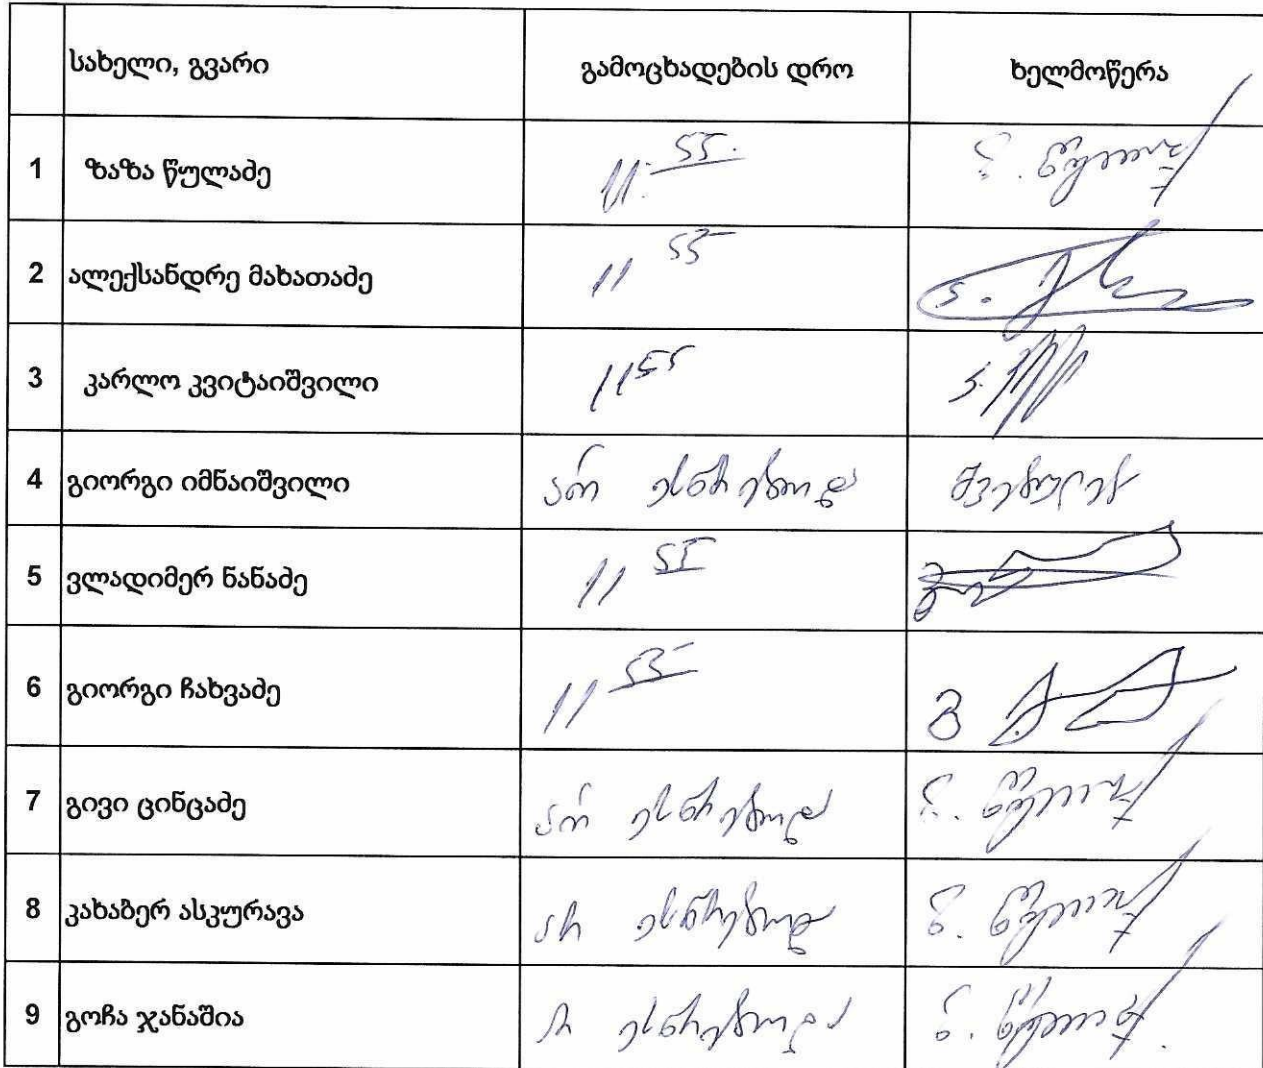 სახელი, გვარი გამოცხადების დრო ხელმოწერა
1 ზაზა წულაძე 11:55
2 ალექსანდრე მახათაძე 11 55
3 კარლო კვიტაიშვილი 11 55
4 გიორგი იმნაიშვილი არ ესწრებოდა
5 ვლადიმერ ნანაძე 11 55
6 გიორგი ჩახვაძე 11 55
7 გივი ცინცაძე არ ესწრებოდა
8 კახაბერ ასკურავა არ ესწრებოდა
9 გოჩა ჯანაშია არ ესწრებოდა